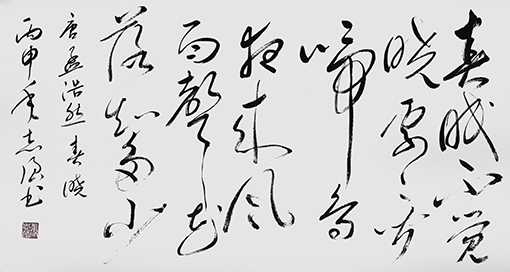 春眠不觉
晓處々闻
啼鸟
夜来风
雨聲花
落知多少
唐孟浩然 春晓
丙申年志书